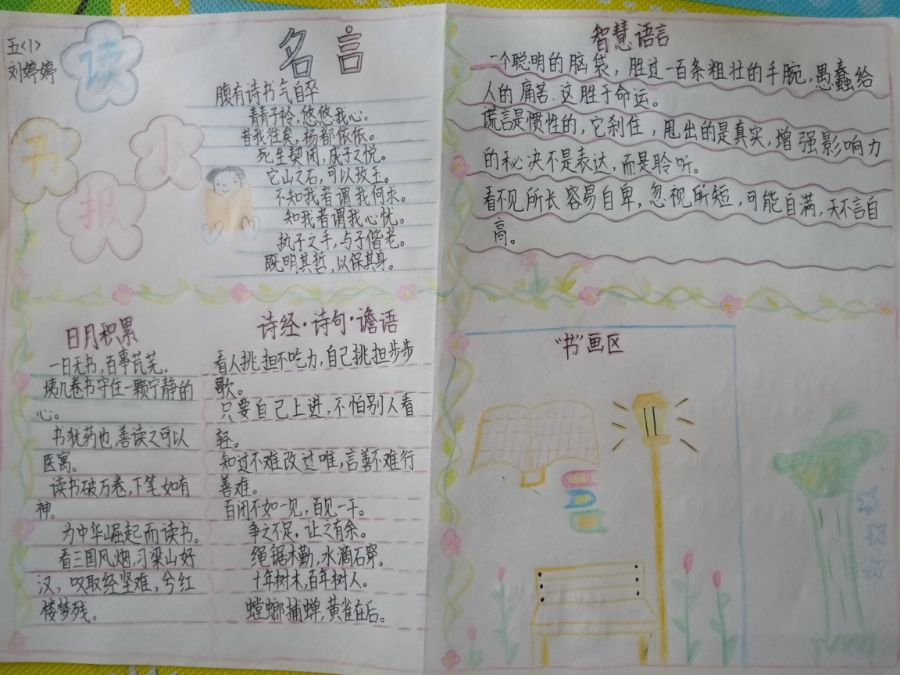 五(1)
刘婷婷
读
书
小
报
名言
腹有诗书气自华
青青子衿，悠悠我心。
昔我往矣，杨柳依依。
死生契阔，成子之悦。
它山之石，可以攻玉。
不知我者谓我何求。
知我者谓我心忧。
执子之手，与子偕老。
既明其哲，以保其身。
智慧语言
一个聪明的脑袋，胜过一百条粗壮的手腕，愚蠢给
人的痛苦，这胜于命运。
谎言是惯性的，它刹住，甩出的是真实，增强影响力
的秘决不是表达，而是聆听。
看不见所长容易自卑，忽视所短，可能自满，天不言自
高。
日月积累
一日无书，百事荒芜。
携几卷书守住一颗宁静的
心。
书犹药也，善读之可以
医寓。
读书破万卷，下笔如有
神。
为中华崛起而读书。
看三国风烟，习梁山好
汉，叹取经坚难，兮红
楼梦残。
诗经·诗句·谵语
看人挑担不吃力，自己挑担步步
歌。
只要自己上进，不怕别人看
轻。
知过不难改过难，言善不难行
善难。
百闻不如一见，百见一干。
争之不足，让之有余。
绳锯木勤，水滴石穿。
十年树木，百年树人。
螳螂捕蝉，黄雀在后。
“书”画区